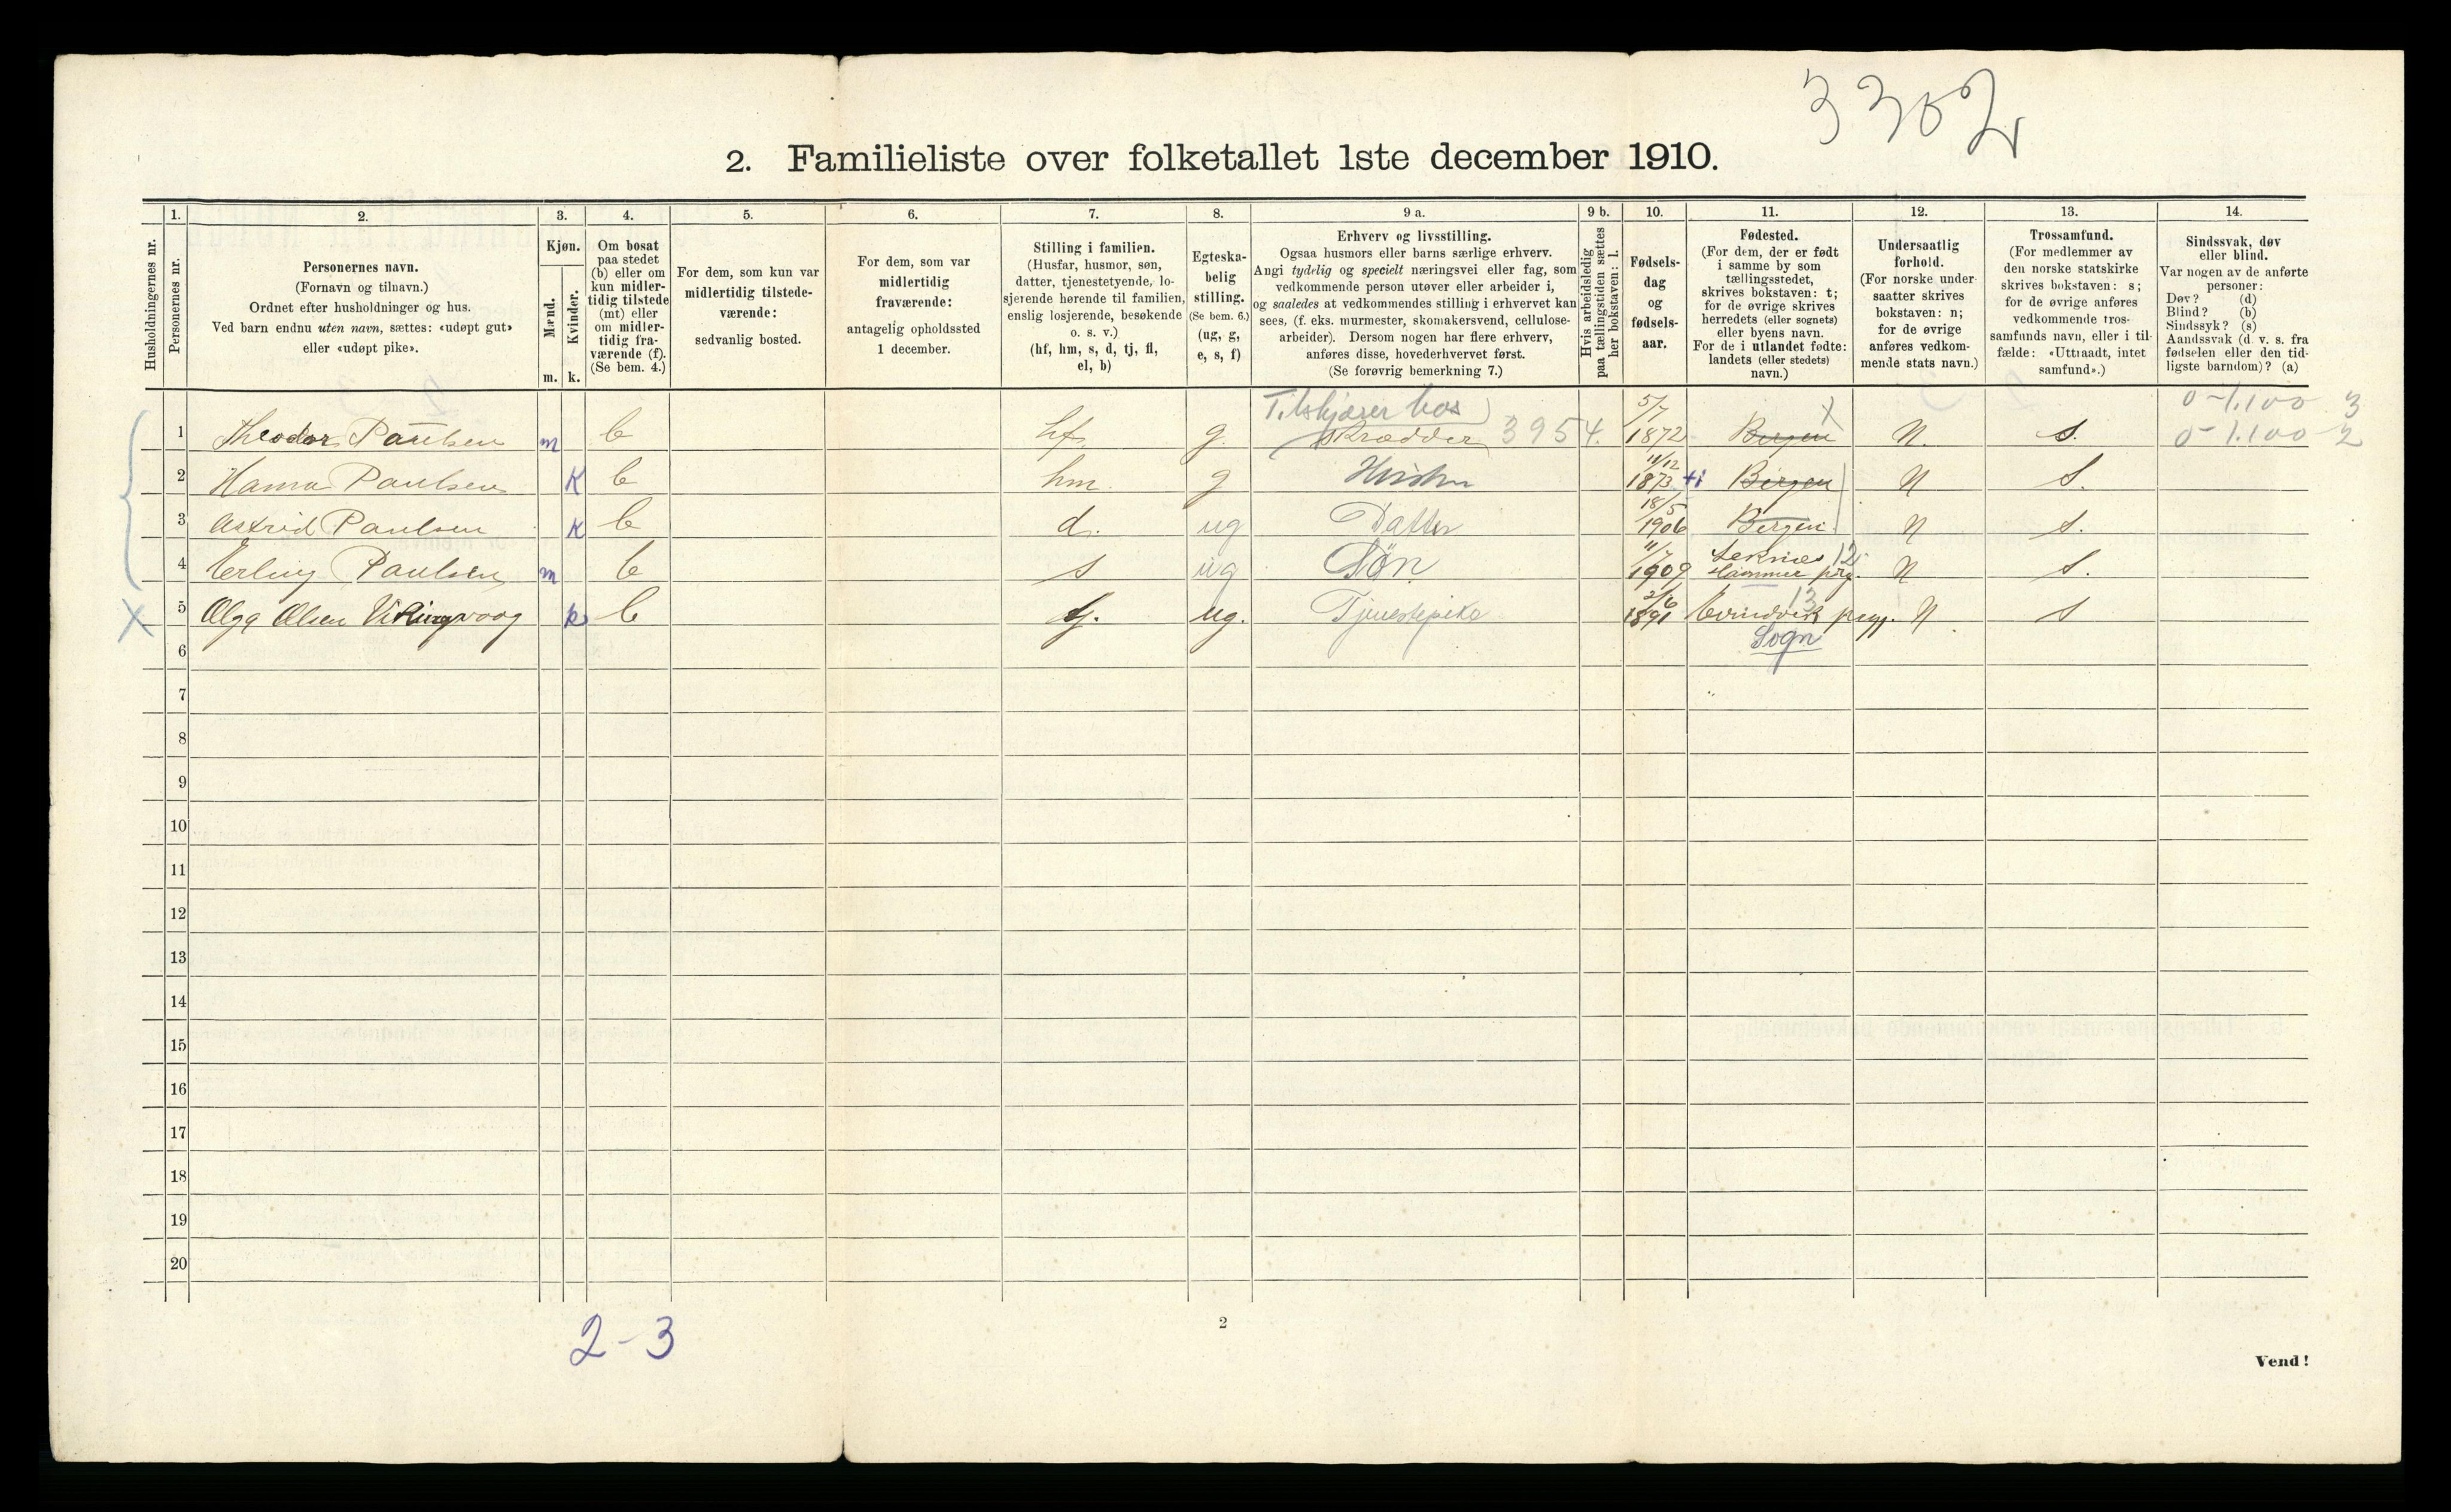 3302
2. Familieliste over folketallet 1ste december 1910.
Husholdningernes nr.
1.
Personernes nr.
2.
Personernes navn.
(Fornavn og tilnavn.)
Ordnet efter husholdninger og hus.
Ved barn endnu uten navn, sættes: «udøpt gut»
eller «udøpt pike».
3.
Kjøn.
Mænd.
Kvinder.
m. k.
4.
Om bosat
paa stedet
(b) eller om
kun midler-
tidig tilstede
(mt) eller
om midler-
tidig fra-
værende (f).
(Se bem. 4.)
5.
For dem, som kun var
midlertidig tilstede-
værende:
sedvanlig bosted.
6.
For dem, som var
midlertidig
fraværende:
antagelig opholdssted
1 december.
7.
Stilling i familien.
(Husfar, husmor, søn,
datter, tjenestetyende, lo-
sjerende hørende til familien,
enslig losjerende, besøkende
o. s. v.)
(hf, hm, s, d, tj, fl,
el, b)
8.
Egteska-
belig
stilling.
(Se bem. 6.)
(ug, g,
e, s, f)
9 a.
Erhverv og livsstilling.
Ogsaa husmors eller barns særlige erhverv.
Angi tydelig og specielt næringsvei eller fag, som
vedkommende person utøver eller arbeider i,
og saaledes at vedkommendes stilling i erhvervet kan
sees, (f. eks. murmester, skomakersvend, cellulose-
arbeider). Dersom nogen har flere erhverv,
anføres disse, hovederhvervet først.
(Se forøvrig bemerkning 7.)
9 b.
Hvis arbeidsledig
paa tællingstiden sættes
her bokstaven: l.
10.
Fødsels-
dag
og
fødsels-
aar.
11.
Fødested.
(For dem, der er født
i samme by som
tællingsstedet,
skrives bokstaven: t;
for de øvrige skrives
herredets (eller sognets)
eller byens navn.
For de i utlandet fødte:
landets (eller stedets)
navn.)
12.
Undersaatlig
forhold.
(For norske under-
saatter skrives
bokstaven: n;
for de øvrige
anføres vedkom-
mende stats navn.)
13.
Trossamfund.
(For medlemmer av
den norske statskirke
skrives bokstaven: s;
for de øvrige anføres
vedkommende tros-
samfunds navn, eller i til-
fælde: «Uttraadt, intet
samfund».)
14.
Sindssvak, døv
eller blind.
Var nogen av de anførte
personer:
Døv? (d)
Blind? (b)
Sindssyk? (s)
Aandssvak (d. v. s. fra
fødselen eller den tid-
ligste barndom)? (a)
Tilskjærer hos 5/7 X 0-1.100 3
1 Theodor Paulsen m b hf g. Skrædder 3954. 1872 Bergen N. S. 0-1.100 2
11/12
2 Hanna Paulsen K b hm. g 1873 ti Bergen N S.
18/5
3 Astrid Paulsen K b d. ug Datter 1906 Bergen. N S.
11/7 12
4 Erling Paulsen m b s ug Søn 1909 Hammer prg. N S.
2/6 13
5 Olga Olsen k b tj. ug. Tjenestepike 1891 Evindvik pregj. N S
X
6 Sogn
7
8
9
10
11
12
13
14
15
16
17
18
19
20
2-3
2
Vend!